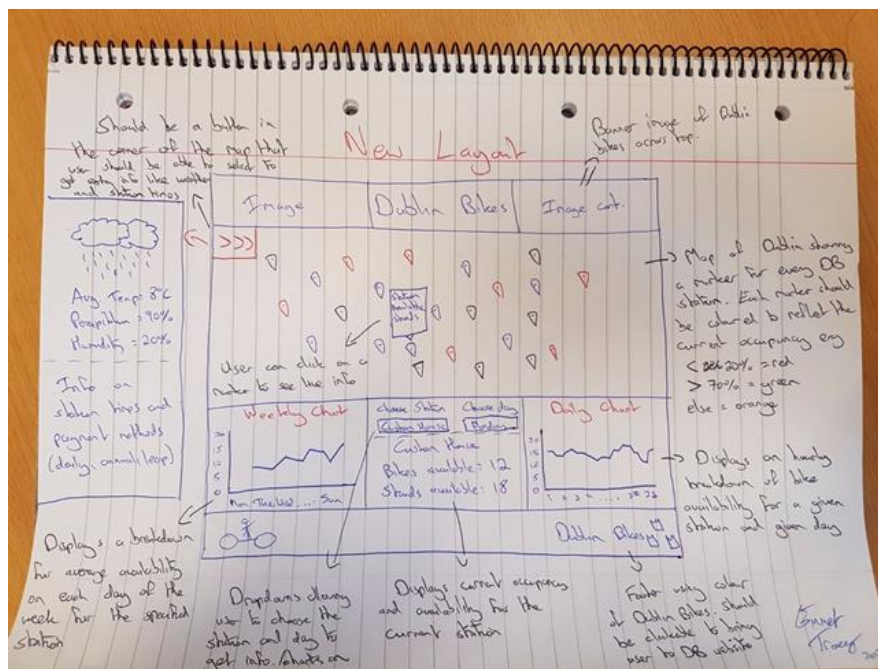 New Layout
Should be a button in
the corner of the map that
user should be able to select to
get extra info like weather
and station times
Banner image of Dublin
bikes across top.
Image
Dublin Bikes
Image cont.
>>>
Avg Temp: 8°C
= 90%
Humidity = 20%
Info on
station times and
payment methods
(daily, annual, leap)
station
available
stands
User can click on a
marker to see live info
Map of Dublin showing
a marker for every DB
station. Each marker should
be coloured to reflect the
current occupancy eg
< 20% = red
> 70% = green
else = orange
Weekly Chart
20
15
10
5
0
Mon Tue Wed .... Sun
Choose Station
Choose day
Custom House
Monday
Custom House
Bikes available: 12
Stands available: 18
Daily Chart
20
15
10
5
0
1 2 3 4 ..... 22 23
Displays an hourly
breakdown of bike
availability for a given
station and given day
Dublin Bikes
Displays a breakdown
for average availability
on each day of the
week for the specified
station
Dropdowns allowing
user to choose the
station and day to
get info/charts on
Displays current occupancy
and availability for the
current station
Footer using colour
of Dublin Bikes. Should
be clickable to bring
user to DB website
Tracey